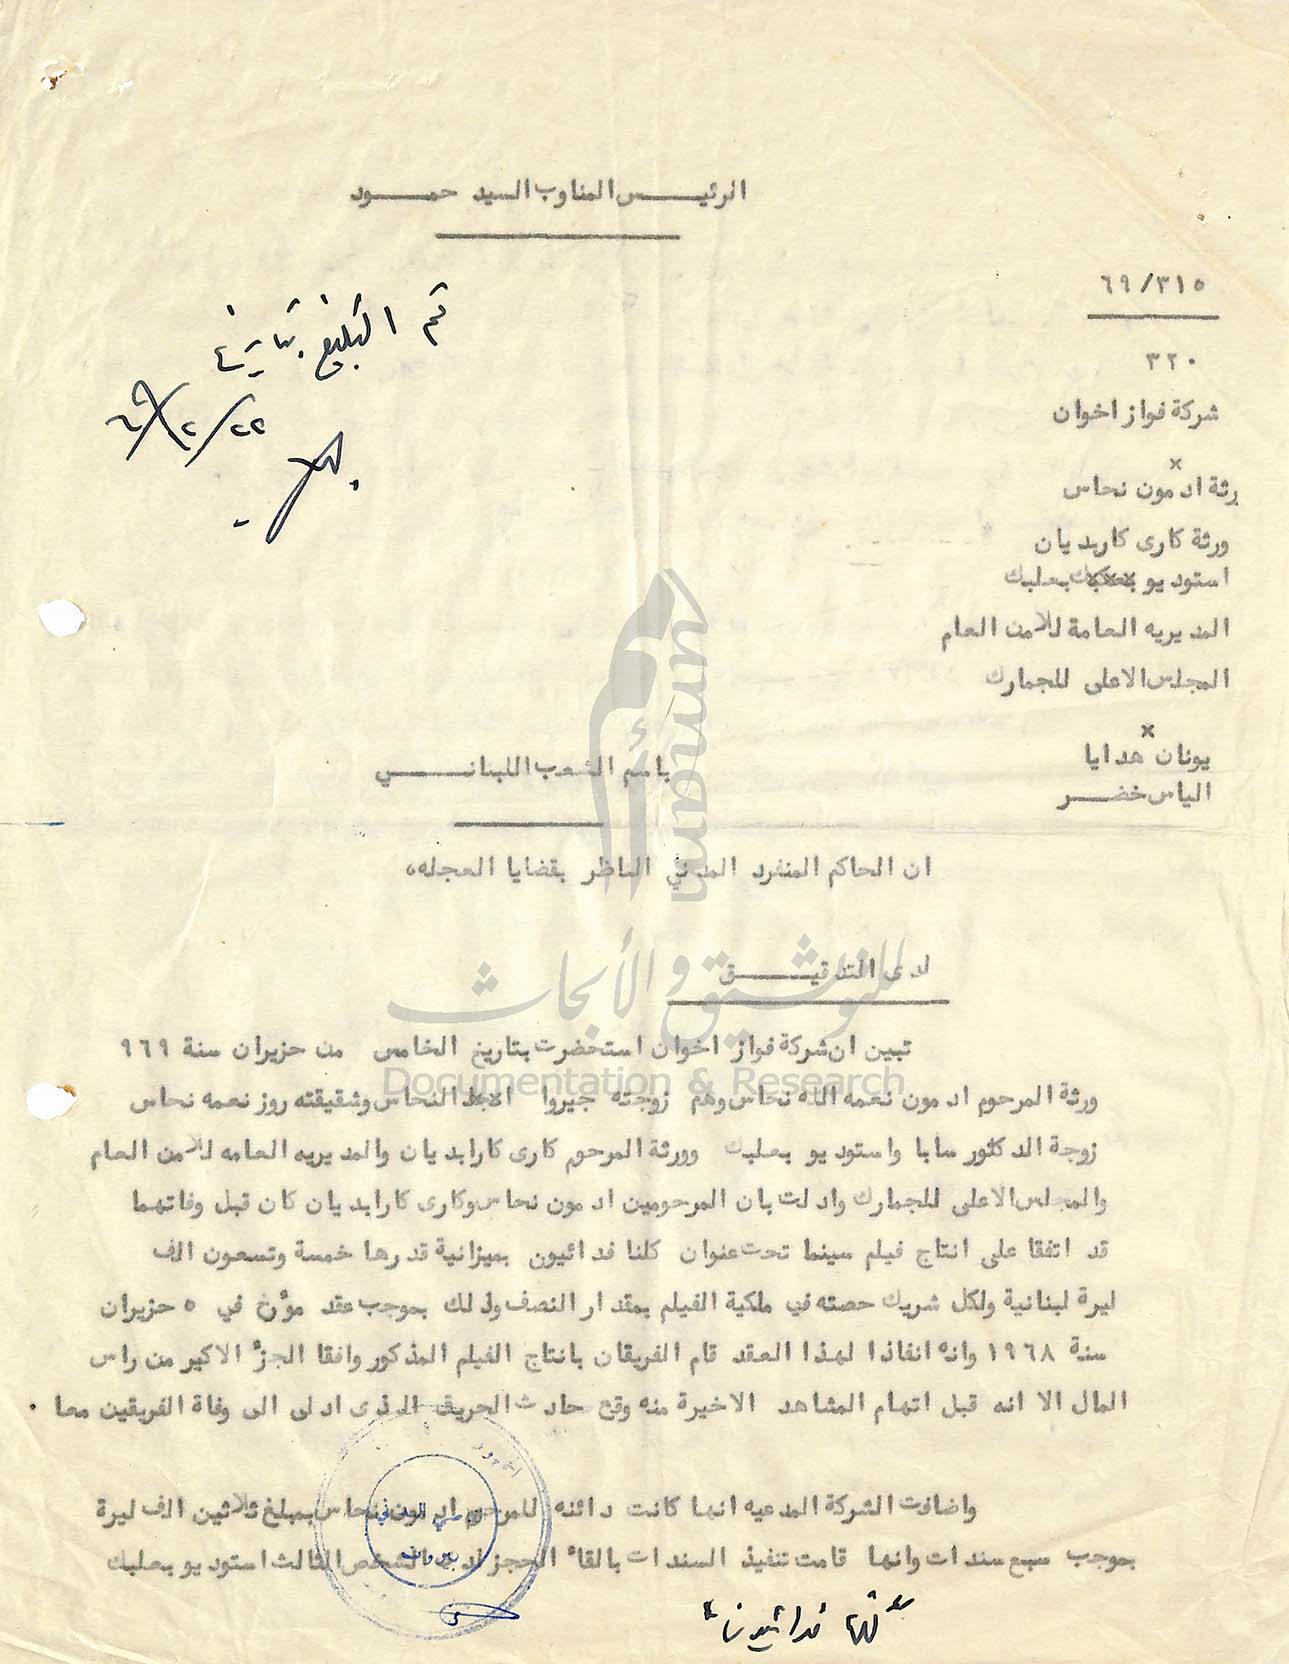 الرئيس المناوب السيد حمود
٦٩/٣١٥
تم التبليغ بتاريخ
٣٢٠
شركة فواز اخوان
x
رثة ادمون نحاس
ورثة كارى كاربديان
استوديو بعلبك
المديريه العامة للامن العام
المجلس الاعلى للجمارك
x
يونان هدايا
باسم الشعب اللبناني
الياس خضر
ان الحاكم المنفرد المدني الناظر بقضايا العجله،
لدى التدقيق
تبين ان شركة فواز اخوان استحضرت بتاريخ الخامس من حزيران سنة ٩٦٩
ورثة المرحوم ادمون نعمه الله نحاس وهم زوجته جيروا النحاس وشقيقته روز نعمه نحاس
زوجة الدكتور سابا واستوديو بعلبك وورثة المرحوم كارى كارابديان والمديريه العامه للامن العام
والمجلس الاعلى للجمارك وادلت بان المرحومين ادمون نحاس وكارى كارابديان كان قبل وفاتهما
قد اتفقا على انتاج فيلم سينما تحت عنوان كلنا فدائيون بميزانية قدرها خمسة وتسعون الف
ليرة لبنانية ولكل شريك حصته في ملكية الفيلم بمقدار النصف وذلك بموجب عقد مؤرخ في ٥ حزيران
سنة ١٩٦٨ وانه انفاذا لهذا العقد قام الفريقان بانتاج الفيلم المذكور وافقا الجزء الاكبر من راس
المال الا انه قبل اتهام المشاهد الاخيرة منه وقع حادث الحريق الذى ادلى الى وفاة الفريقين معا .
واضافت الشركة المدعيه انها كانت دائنه للمرحوم ادمون نحاس بمبلغ ثلاثين الف ليرة
بموجب سبع سندات وانها قامت تنفيذ السندات بالقاء الحجز لدى الشخص الثالث استوديو بعلبك
"كلنا فدائيون"
أمم
umam
للتوثيق والأبحاث
Documentation & Research